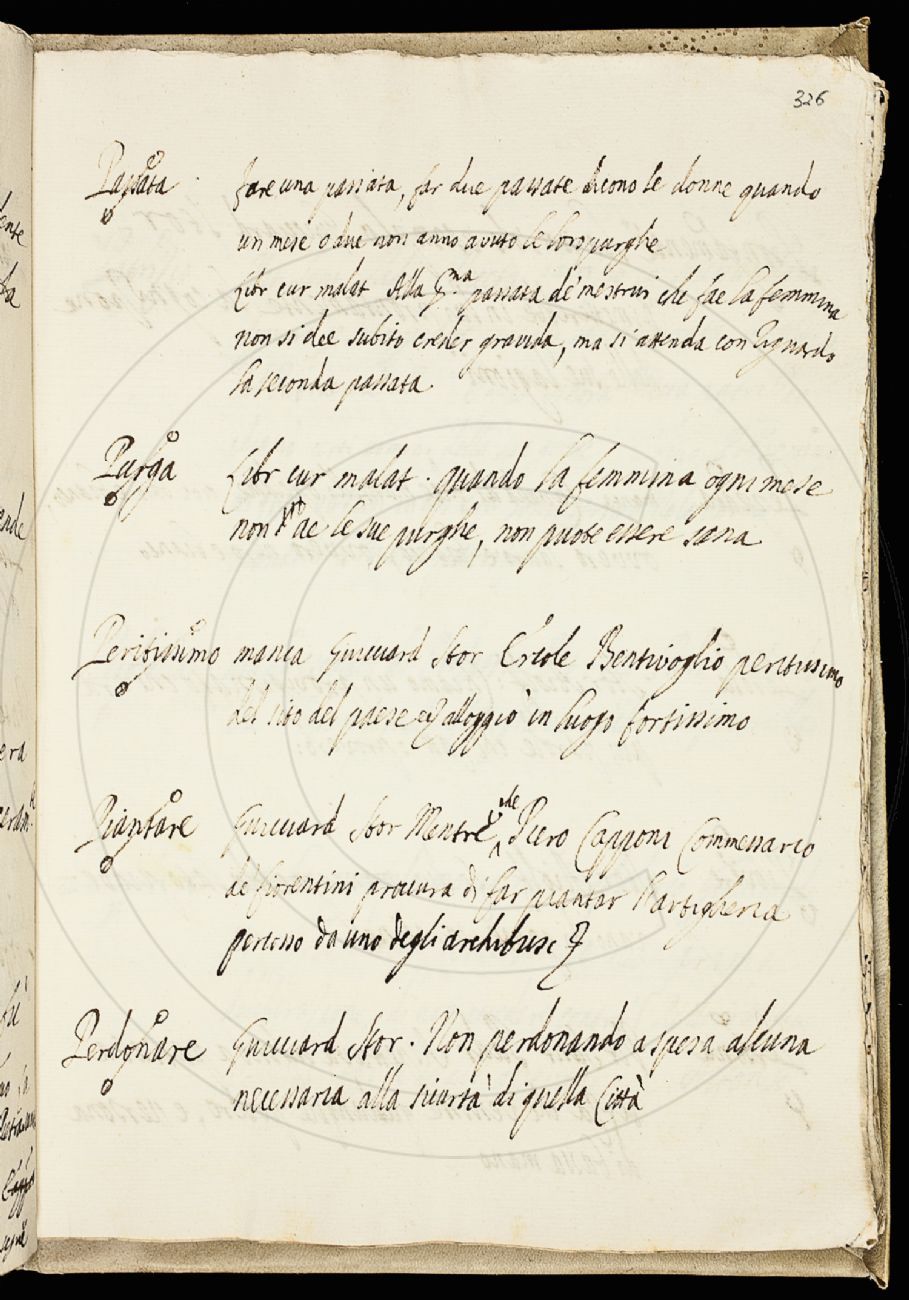 326
Passata fare una passata, far due passate dicono le donne quando
un mese o due non anno avuto le loro purghe
Libr cur malat Alla p.ma passata de mestrui che fae la femmina
non si dee subito creder gravida, ma si attenda con riguardo
la seconda passata.
Purga Libr cur malat. quando la femmina ogni mese
non ae le sue purghe, non puote essere sana
Peritissimo manca Guicciard Stor Ercole Bentivoglio peritissimo
del sito del paese alloggiò in luogo fortissimo
Piantare Guicciard Stor Mentre Piero Capponi Commessario
de fiorentini procura di far piantar l'artiglieria
percosso da uno degli archibusi
Perdonare Guicciard Stor. Non perdonando a spesa alcuna
necessaria alla sicurtà di quella Città